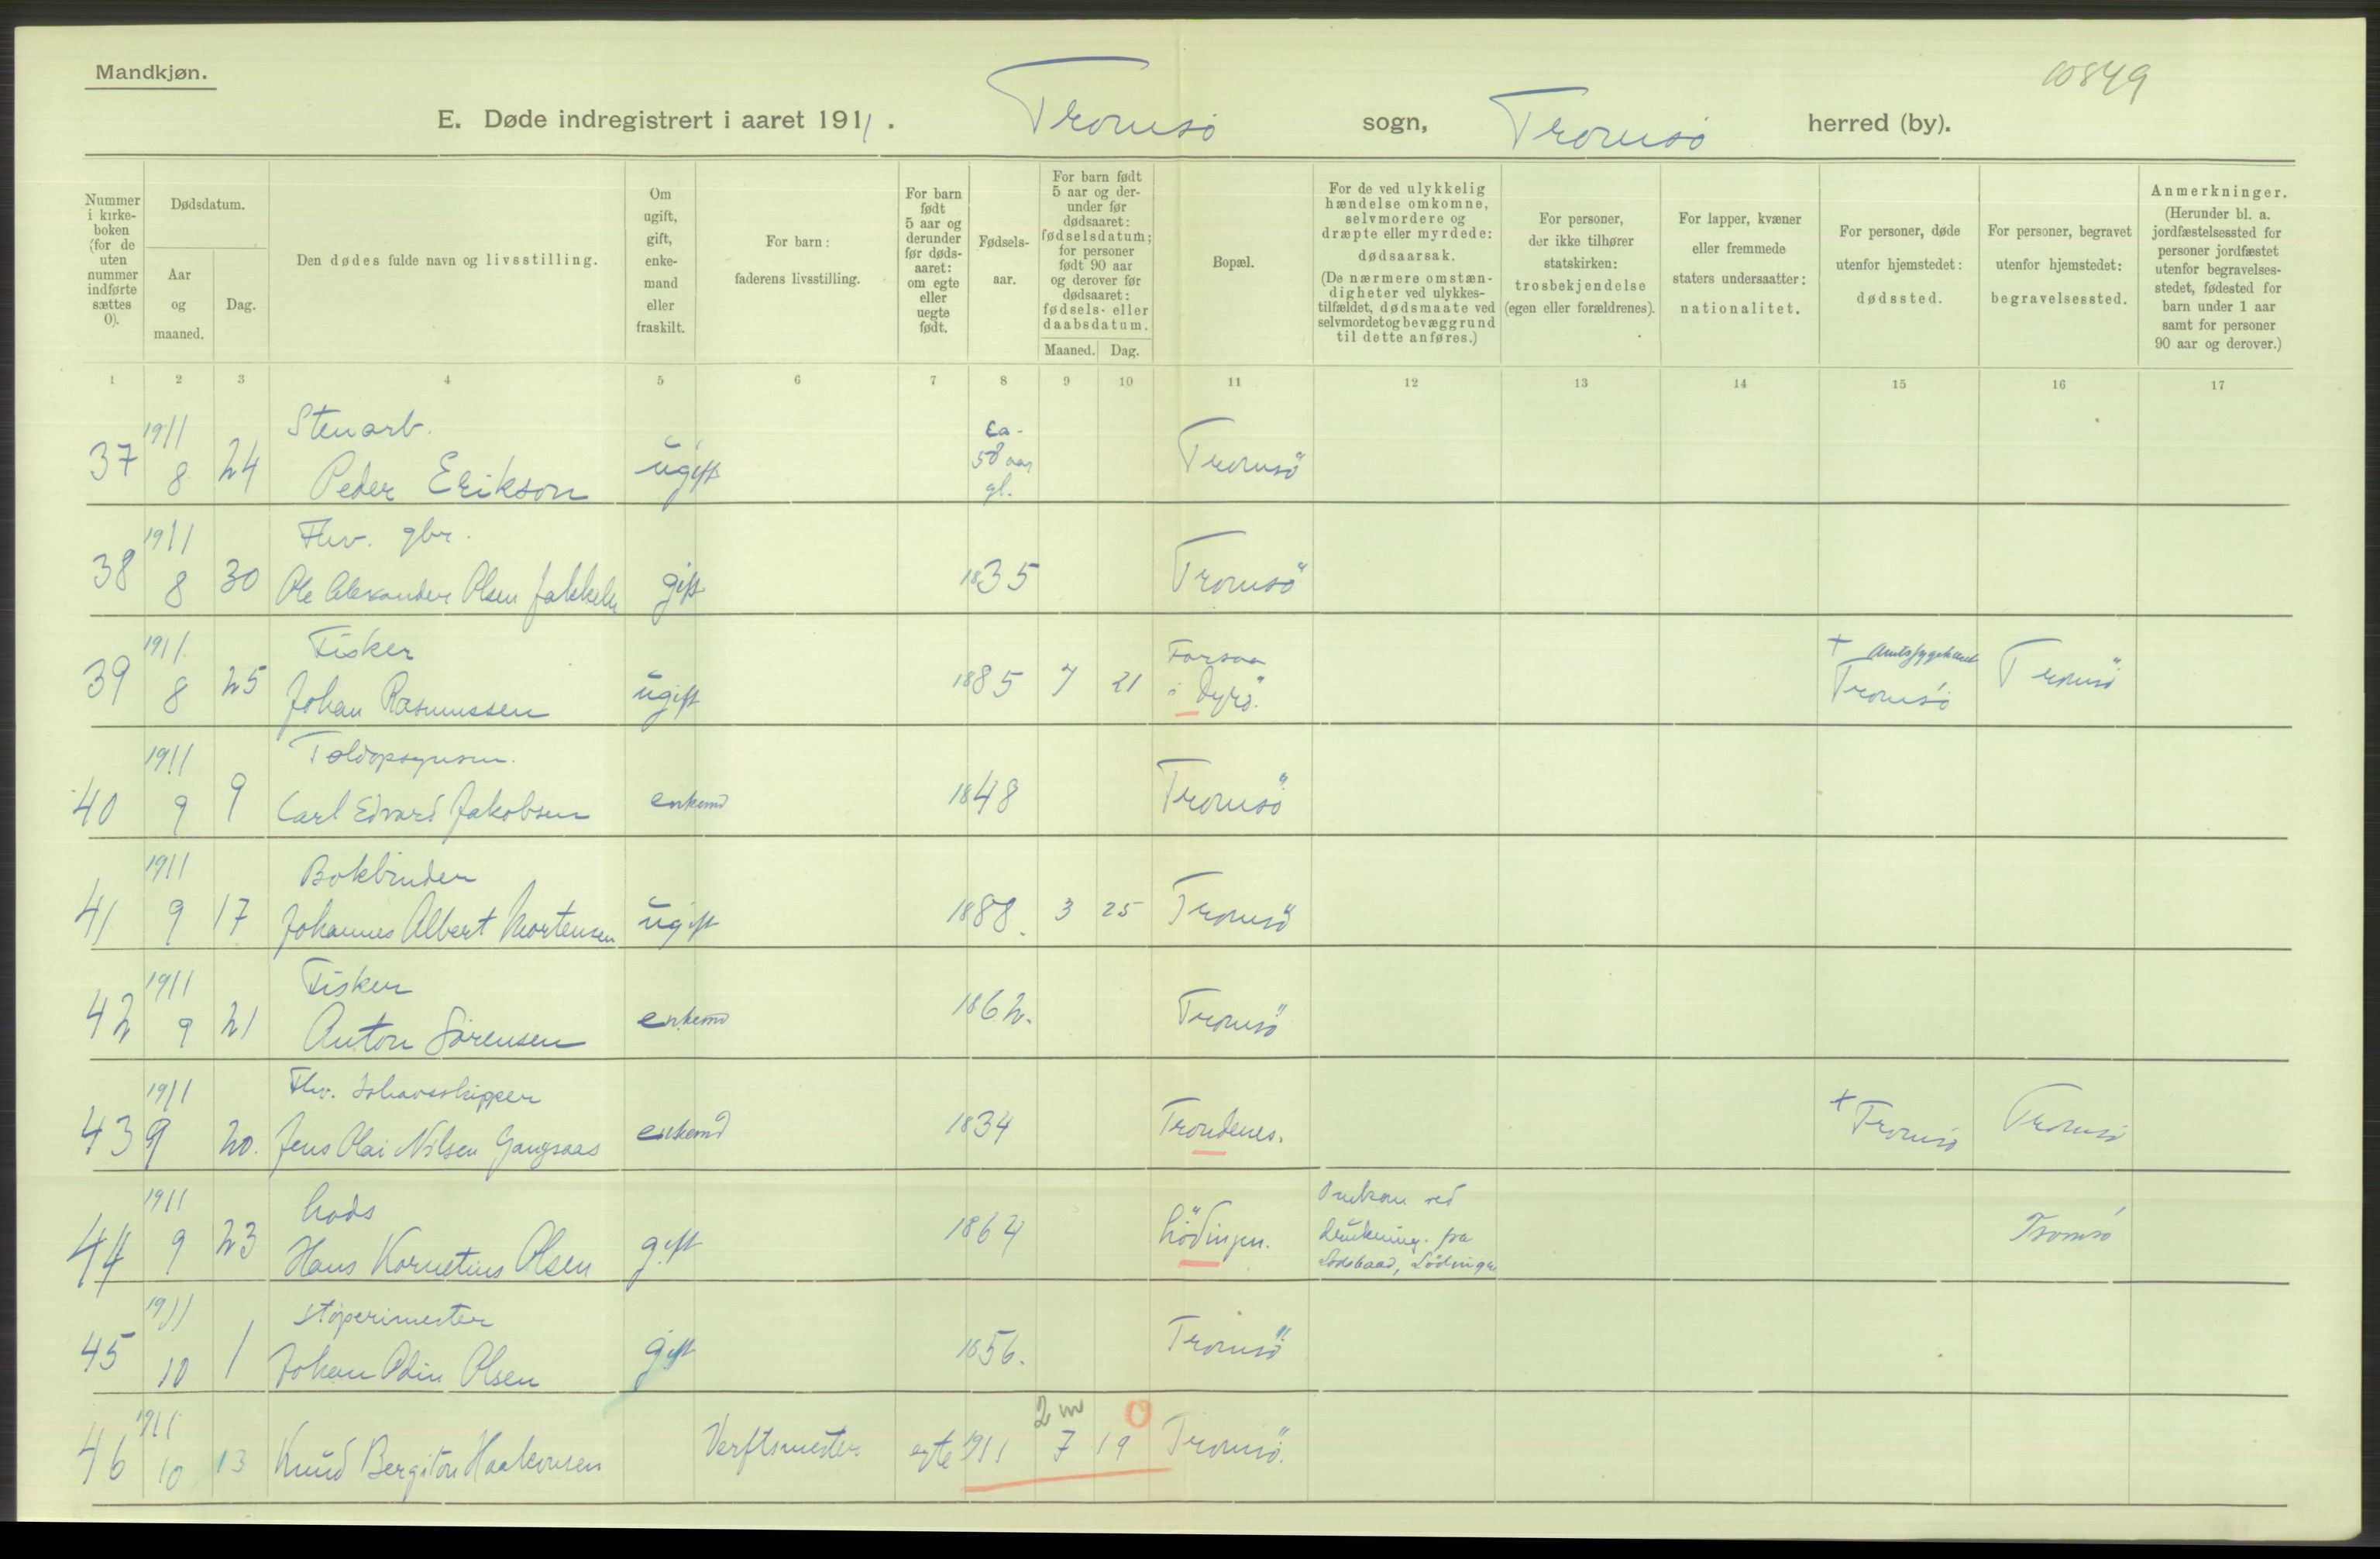 Mandkjøn.
10849
E. Døde indregistrert i aaret 1911. Tromsø sogn, Tromsø herred (by).
Nummer i kirkeboken (for de uten nummer indførte sættes 0).
Dødsdatum.
Aar og maaned.
Dag.
Den dødes fulde navn og livsstilling.
Om ugift, gift, enkemand eller fraskilt.
For barn: faderens livsstilling.
For barn født 5 aar og derunder før dødsaaret: om egte eller uegte født.
Fødselsaar.
For barn født 5 aar og derunder før dødsaaret: fødselsdatum; for personer født 90 aar og derover før dødsaaret: fødsels- eller daabsdatum.
Maaned. Dag.
Bopæl.
For de ved ulykkelig hændelse omkomne, selvmordere og dræpte eller myrdede: dødsaarsak. (De nærmere omstændigheter ved ulykkestilfældet, dødsmaate ved selvmord et og bevæggrund til dette anføres.)
For personer, der ikke tilhører statskirken: trosbekjendelse (egen eller forældrenes).
For lapper, kvæner eller fremmede staters undersaatter: nationalitet.
For personer, døde utenfor hjemstedet: dødssted.
For personer, begravet utenfor hjemstedet: begravelsessted.
Anmerkninger. (Herunder bl. a. jordfæstelsessted for personer jordfæstet utenfor begravelsesstedet, fødested for barn under 1 aar samt for personer 90 aar og derover.)
1 2 3 4 5 6 7 8 9 10 11 12 13 14 15 16 17
37 1911 8 24 Stenarb. Peder Erikson ugift ca. 58 aar gl. Tromsö
38 1911 8 30 Fhv. gbr. Ole Alexander Olsen gift 1835 Tromsö
39 1911 8 25 Fisker Johan Rasmussen ugift 1885 7 21 Forsaa i Dyrö. + Amtssygehuset Tromsö Tromsö
40 1911 9 9 Toldopsynsm. Carl Edvard Jakobsen enkemd 1848 Tromsö
41 1911 9 17 Bokbinder Johannes Albert Mortensen ugift 1888. 3 25 Tromsö
42 1911 9 21 Fisker Anton Sörensen enkemd 1862. Tromsö
43 1911 9 20. Fhv. Ishavsskipper Jens Olai Nilsen Gangsaas enkemd 1834 Trondenes. + Tromsö Tromsö
44 1911 9 23 Lods Hans Kornelius Olsen gift 1864 Lödingen. Omkom ved drukning fra Lodsbaad, Lödingen Tromsö
45 1911 10 1 Støperimester Johan Odin Olsen gift 1856. Tromsö
46 1911 10 13 Knud Bergiton Haakonsen Verftsmester egte 1911 2 m 7 19 0 Tromsö.